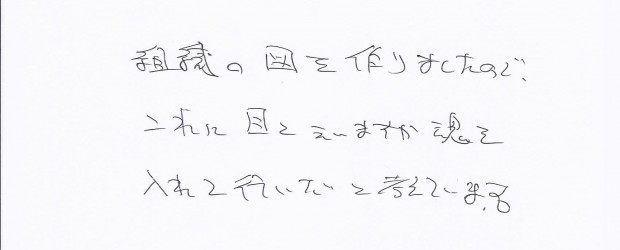 組織の図を作りましたので、
これに目といいますか魂を
入れて行いたいと考えています。